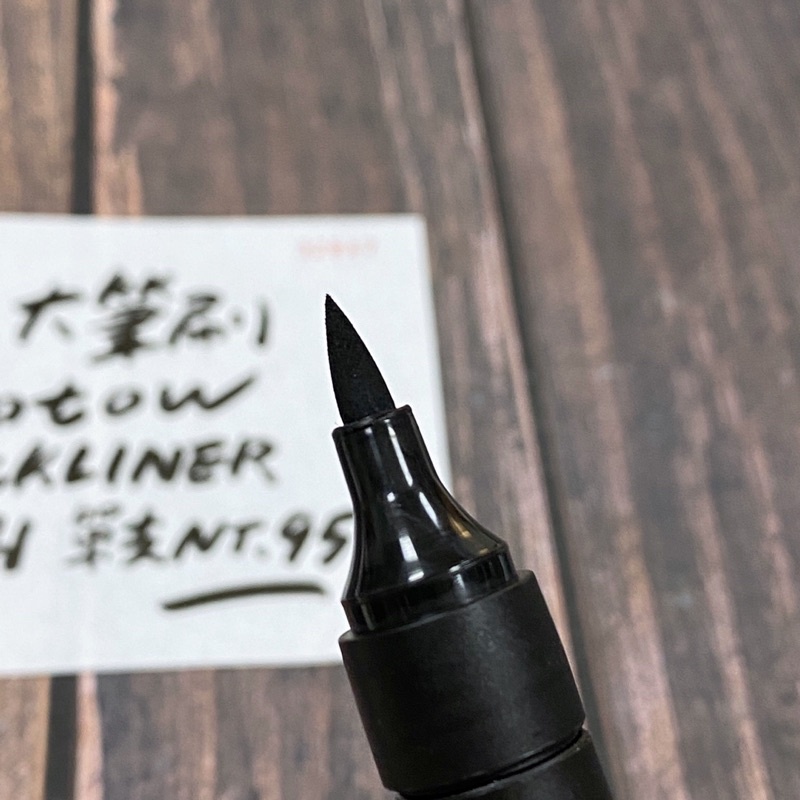 大筆刷
otow
KLINER
筆支NT.95